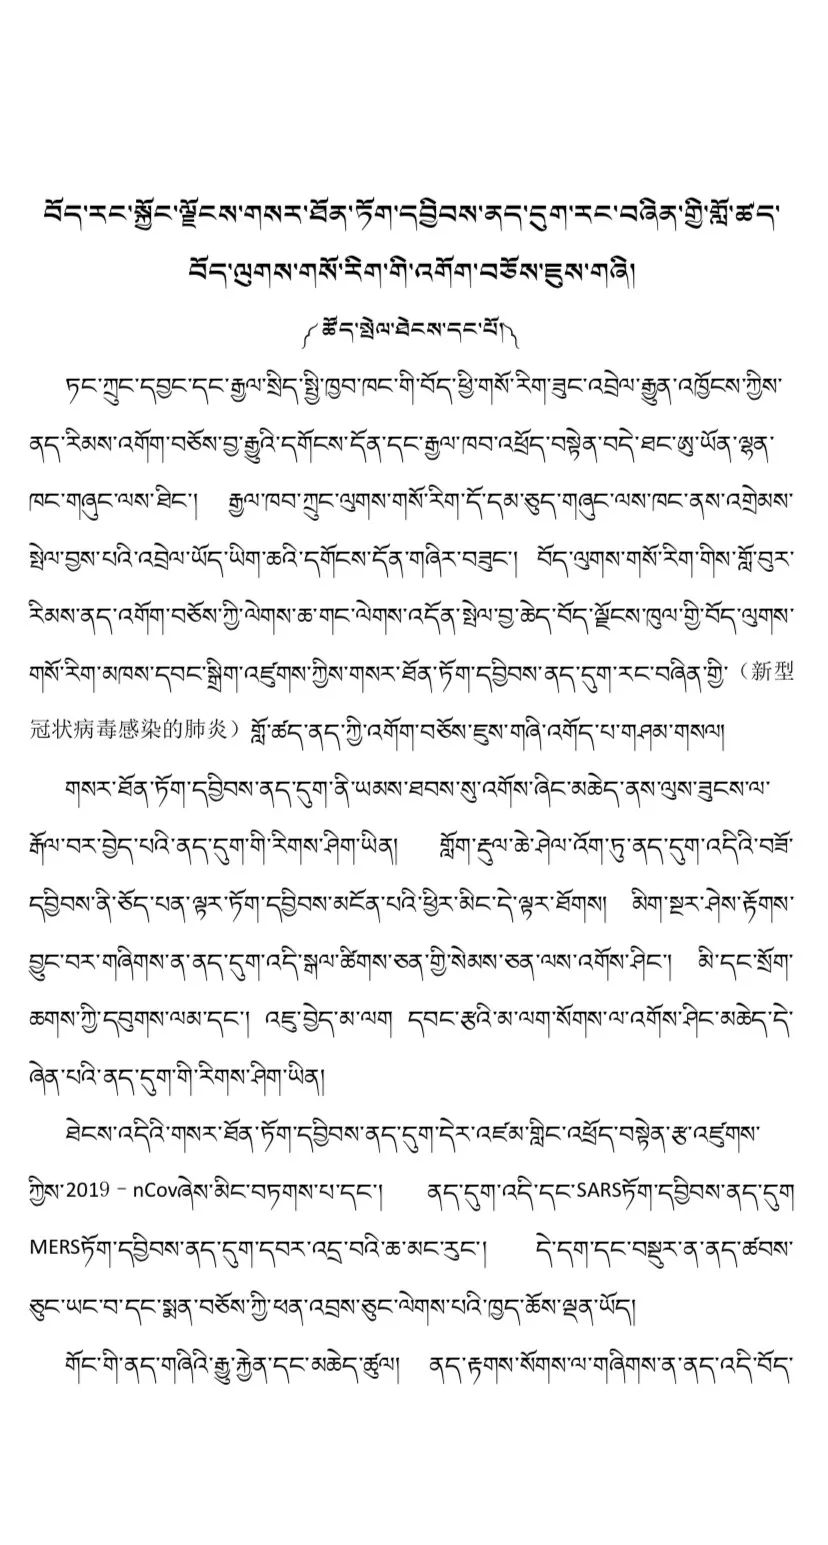 བོད་རང་སྐྱོང་ལྗོངས་གསར་ཐོན་ཏོག་དབྱིབས་ནད་དུག་རང་བཞིན་གྱི་གློ་ཚད་
བོད་ལུགས་གསོ་རིག་གི་འགོག་བཅོས་ཇུས་གཞི།
༼ ཚོད་སྤེལ་ཐེངས་དང་པོ།༽
ཏང་ཀྲུང་དབྱང་དང་རྒྱལ་སྲིད་སྤྱི་ཁྱབ་ཁང་གི་བོད་ཕྱི་གསོ་རིག་ཟུང་འབྲེལ་རྒྱུན་འཁྱོངས་ཀྱིས་
ནད་རིམས་འགོག་བཅོས་བྱ་རྒྱུའི་དགོངས་དོན་དང་རྒྱལ་ཁབ་འཕྲོད་བསྟེན་བདེ་ཐང་ཨུ་ཡོན་ལྷན་
ཁང་གཞུང་ལས་ཐིང་། རྒྱལ་ཁབ་ཀྲུང་ལུགས་གསོ་རིག་དོ་དམ་ཅུད་གཞུང་ལས་ཁང་ནས་འགྲེམས་
སྤེལ་བྱས་པའི་འབྲེལ་ཡོད་ཡིག་ཆའི་དགོངས་དོན་གཞིར་བཟུང་། བོད་ལུགས་གསོ་རིག་གིས་གློ་བུར་
རིམས་ནད་འགོག་བཅོས་ཀྱི་ལེགས་ཆ་གང་ལེགས་འདོན་སྤེལ་བྱ་ཆེད་བོད་ལྗོངས་ཁུལ་གྱི་བོད་ལུགས་
གསོ་རིག་མཁས་དབང་སྒྲིག་འཛུགས་ཀྱིས་གསར་ཐོན་ཏོག་དབྱིབས་ནད་དུག་རང་བཞིན་གྱི་（新型
冠状病毒感染的肺炎）གློ་ཚད་ནད་ཀྱི་འགོག་བཅོས་ཇུས་གཞི་འགོད་པ་གཤམ་གསལ།
གསར་ཐོན་ཏོག་དབྱིབས་ནད་དུག་ནི་ཡམས་ཐབས་སུ་འགོས་ཞིང་མཆེད་ནས་ལུས་ཟུངས་ལ་
རྒོལ་བར་བྱེད་པའི་ནད་དུག་གི་རིགས་ཤིག་ཡིན། གློག་རྡུལ་ཆེ་ཤེལ་འོག་ཏུ་ནད་དུག་འདིའི་བཟོ་
དབྱིབས་ནི་ཅོད་པན་ལྟར་ཏོག་དབྱིབས་མངོན་པའི་ཕྱིར་མིང་དེ་ལྟར་ཐོགས། མིག་སྔར་ཤེས་རྟོགས་
བྱུང་བར་གཞིགས་ན་ནད་དུག་འདི་སྒལ་ཚིགས་ཅན་གྱི་སེམས་ཅན་ལས་འགོས་ཤིང་། མི་དང་སྲོག་
ཆགས་ཀྱི་དབུགས་ལམ་དང་། འཇུ་བྱེད་མ་ལག དབང་རྩའི་མ་ལག་སོགས་ལ་འགོས་ཤིང་མཆེད་དེ་
ཞེན་པའི་ནད་དུག་གི་རིགས་ཤིག་ཡིན།
ཐེངས་འདིའི་གསར་ཐོན་ཏོག་དབྱིབས་ནད་དུག་དེར་འཛམ་གླིང་འཕྲོད་བསྟེན་རྩ་འཛུགས་
ཀྱིས་2019－nCovཞེས་མིང་བཏགས་པ་དང་། ནད་དུག་འདི་དང་SARSཏོག་དབྱིབས་ནད་དུག
MERSཏོག་དབྱིབས་ནད་དུག་དབར་འདྲ་བའི་ཆ་མང་རུང་། དེ་དག་དང་བསྡུར་ན་ནད་ཚབས་
ཅུང་ཡང་བ་དང་སྨན་བཅོས་ཀྱི་ཕན་འབྲས་ཅུང་ལེགས་པའི་ཁྱད་ཆོས་ལྡན་ཡོད།
གོང་གི་ནད་གཞིའི་རྒྱུ་རྐྱེན་དང་མཆེད་ཚུལ། ནད་རྟགས་སོགས་ལ་གཞིགས་ན་ནད་འདི་བོད་